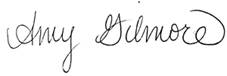 Amy Gilmore